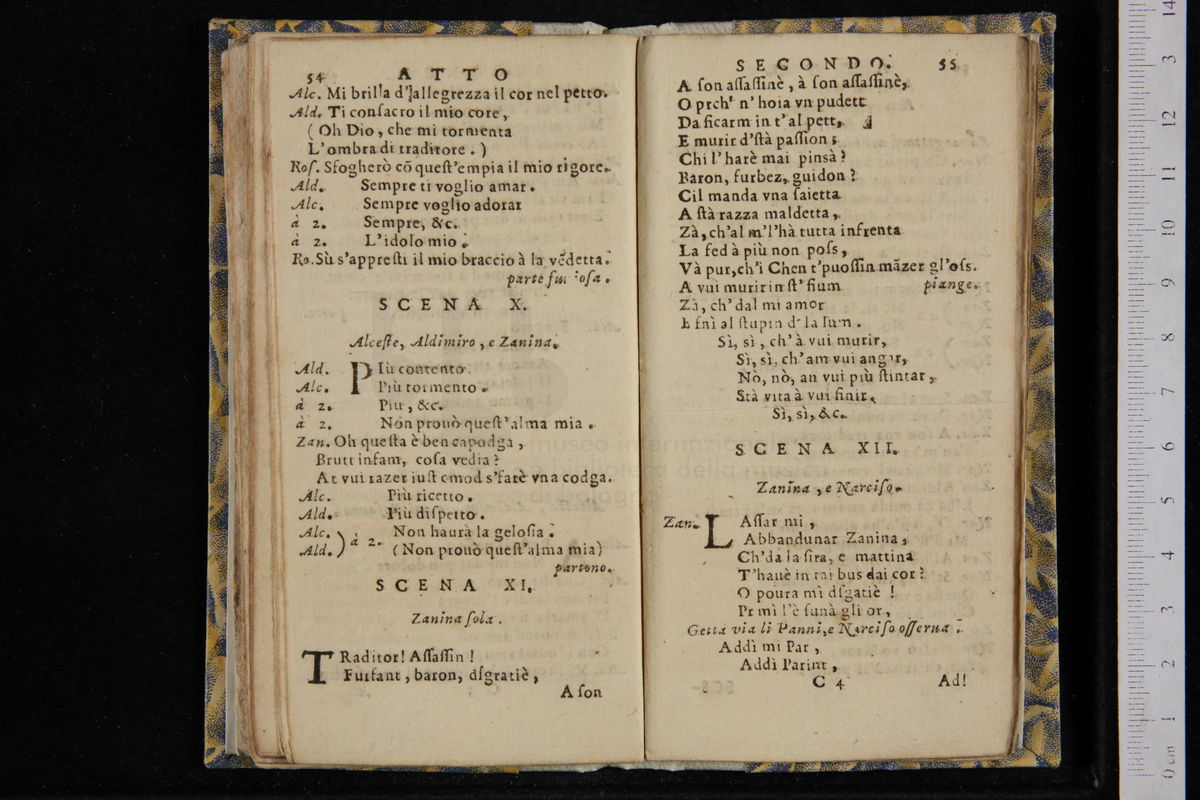 54 ATTO
Alc. Mi brilla d'allegrezza il cor nel petto.
Ald. Ti conſacro il mio core,
( Oh Dio, che mi tormenta
L'ombra di traditore. )
Roſ. Sfogherò cõ queſt'empia il mio rigore.
Ald. Sempre ti voglio amar.
Alc. Sempre voglio adorar
à 2. Sempre, &c.
à 2. L'idolo mio.
Ro. Sù s'appreſti il mio braccio à la vẽdetta.
parte furioſa.
SCENA X.
Alceſte, Aldimiro, e Zanina.
Ald. PIù contento.
Alc. Più tormento.
à 2. Più, &c.
à 2. Non prouò queſt'alma mia.
Zan. Oh queſta è ben capodga,
Brutt infam, coſa vedia?
At vui razer iuſt cmod s'farè vna codga.
Alc. Più ricetto.
Ald. Più diſpetto.
Alc. ) à 2. Non haurà la geloſia.
Ald. ) (Non prouò queſt'alma mia)
partono.
SCENA XI.
Zanina ſola.
TRaditor! Aſſaſſin!
Furfant, baron, dſgratiè,
A ſon
SECONDO. 55
A ſon aſſaſſinè, à ſon aſſaſſinè,
O prch' n' hoia vn pudett
Da ficarm in t'al pett,
E murir d'ſtà paſſion;
Chi l'harè mai pinsà?
Baron, furbez, guidon?
Cil manda vna ſaietta
A ſtà razza maldetta,
Zà, ch'al m'l'hà tutta infrenta
La fed à più non poſs,
Và pur, ch'i Chen t'puoſſin mãzer gl'oſs.
A vui murir in ſt' fium piange.
Zà, ch'dal mi amor
E fnì al ſtupin d' la lum.
Sì, sì, ch'à vui murir,
Sì, sì, ch'am vui angar,
Nò, nò, an vui più ſtintar,
Stà vita à vui finir.
Sì, sì, &c.
SCENA XII.
Zanina, e Narciſo.
Zan. LAſſar mi,
Abbandunar Zanina,
Ch'da la ſira, e mattina
T'hauè in tal bus dai cor?
O poura mì dſgatiè!
Pr mì l'è ſunà gli or,
Getta via li Panni, e Narciſo oſſerua.
Addì mi Par,
Addì Parint,
C 4 Ad!
museo internazionale
e biblioteca della musica
di bologna
0 cm 1 2 3 4 5 6 7 8 9 10 11 12 13 14